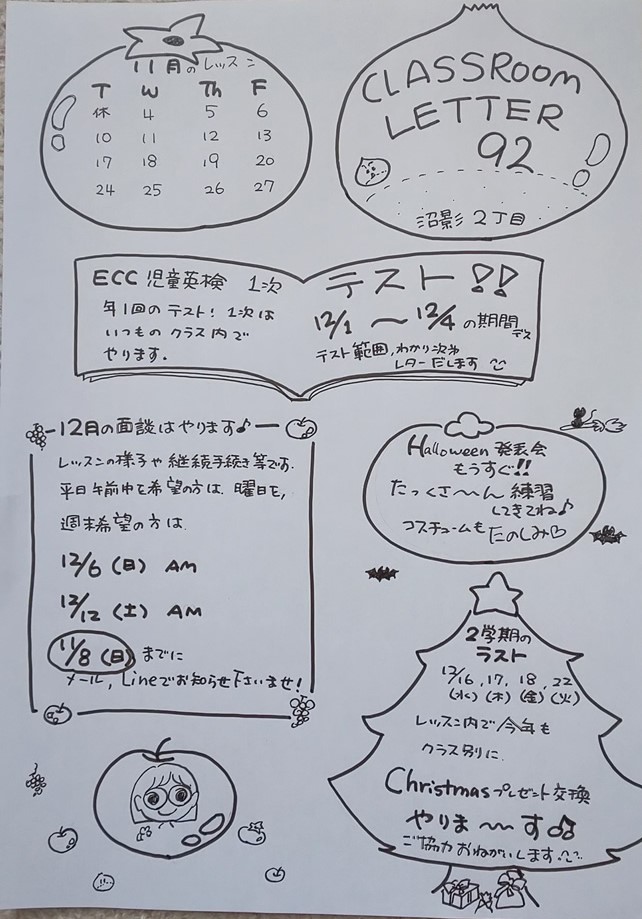 11月のレッスン
T W Th F
休 4 5 6
10 11 12 13
17 18 19 20
24 25 26 27
CLASSROOM
LETTER
92
沼影 2丁目
ECC 児童英検 1次
年1回のテスト! 1次は
いつものクラス内で
やります.
テスト!!
12/1 〜 12/4 の期間デス
テスト範囲,わかり次第
レターだします
12月の面談はやります♪
レッスンの様子や継続手続き等です.
平日午前中を希望の方は、曜日を,
週末希望の方は
12/6 (日) AM
12/12 (土) AM
11/8 (日) までに
メール, Lineでお知らせ下さいませ!
Halloween 発表会
もうすぐ!!
たっくさ〜〜ん 練習
してきてね♪
コスチュームもたのしみ
2学期の
ラスト
12/16 , 17, 18 , 22
(水) (木) (金) (火)
レッスン内で今年も
クラス別に
Christmas プレゼント交換
やりま〜〜す♫
ご協力おねがいします.